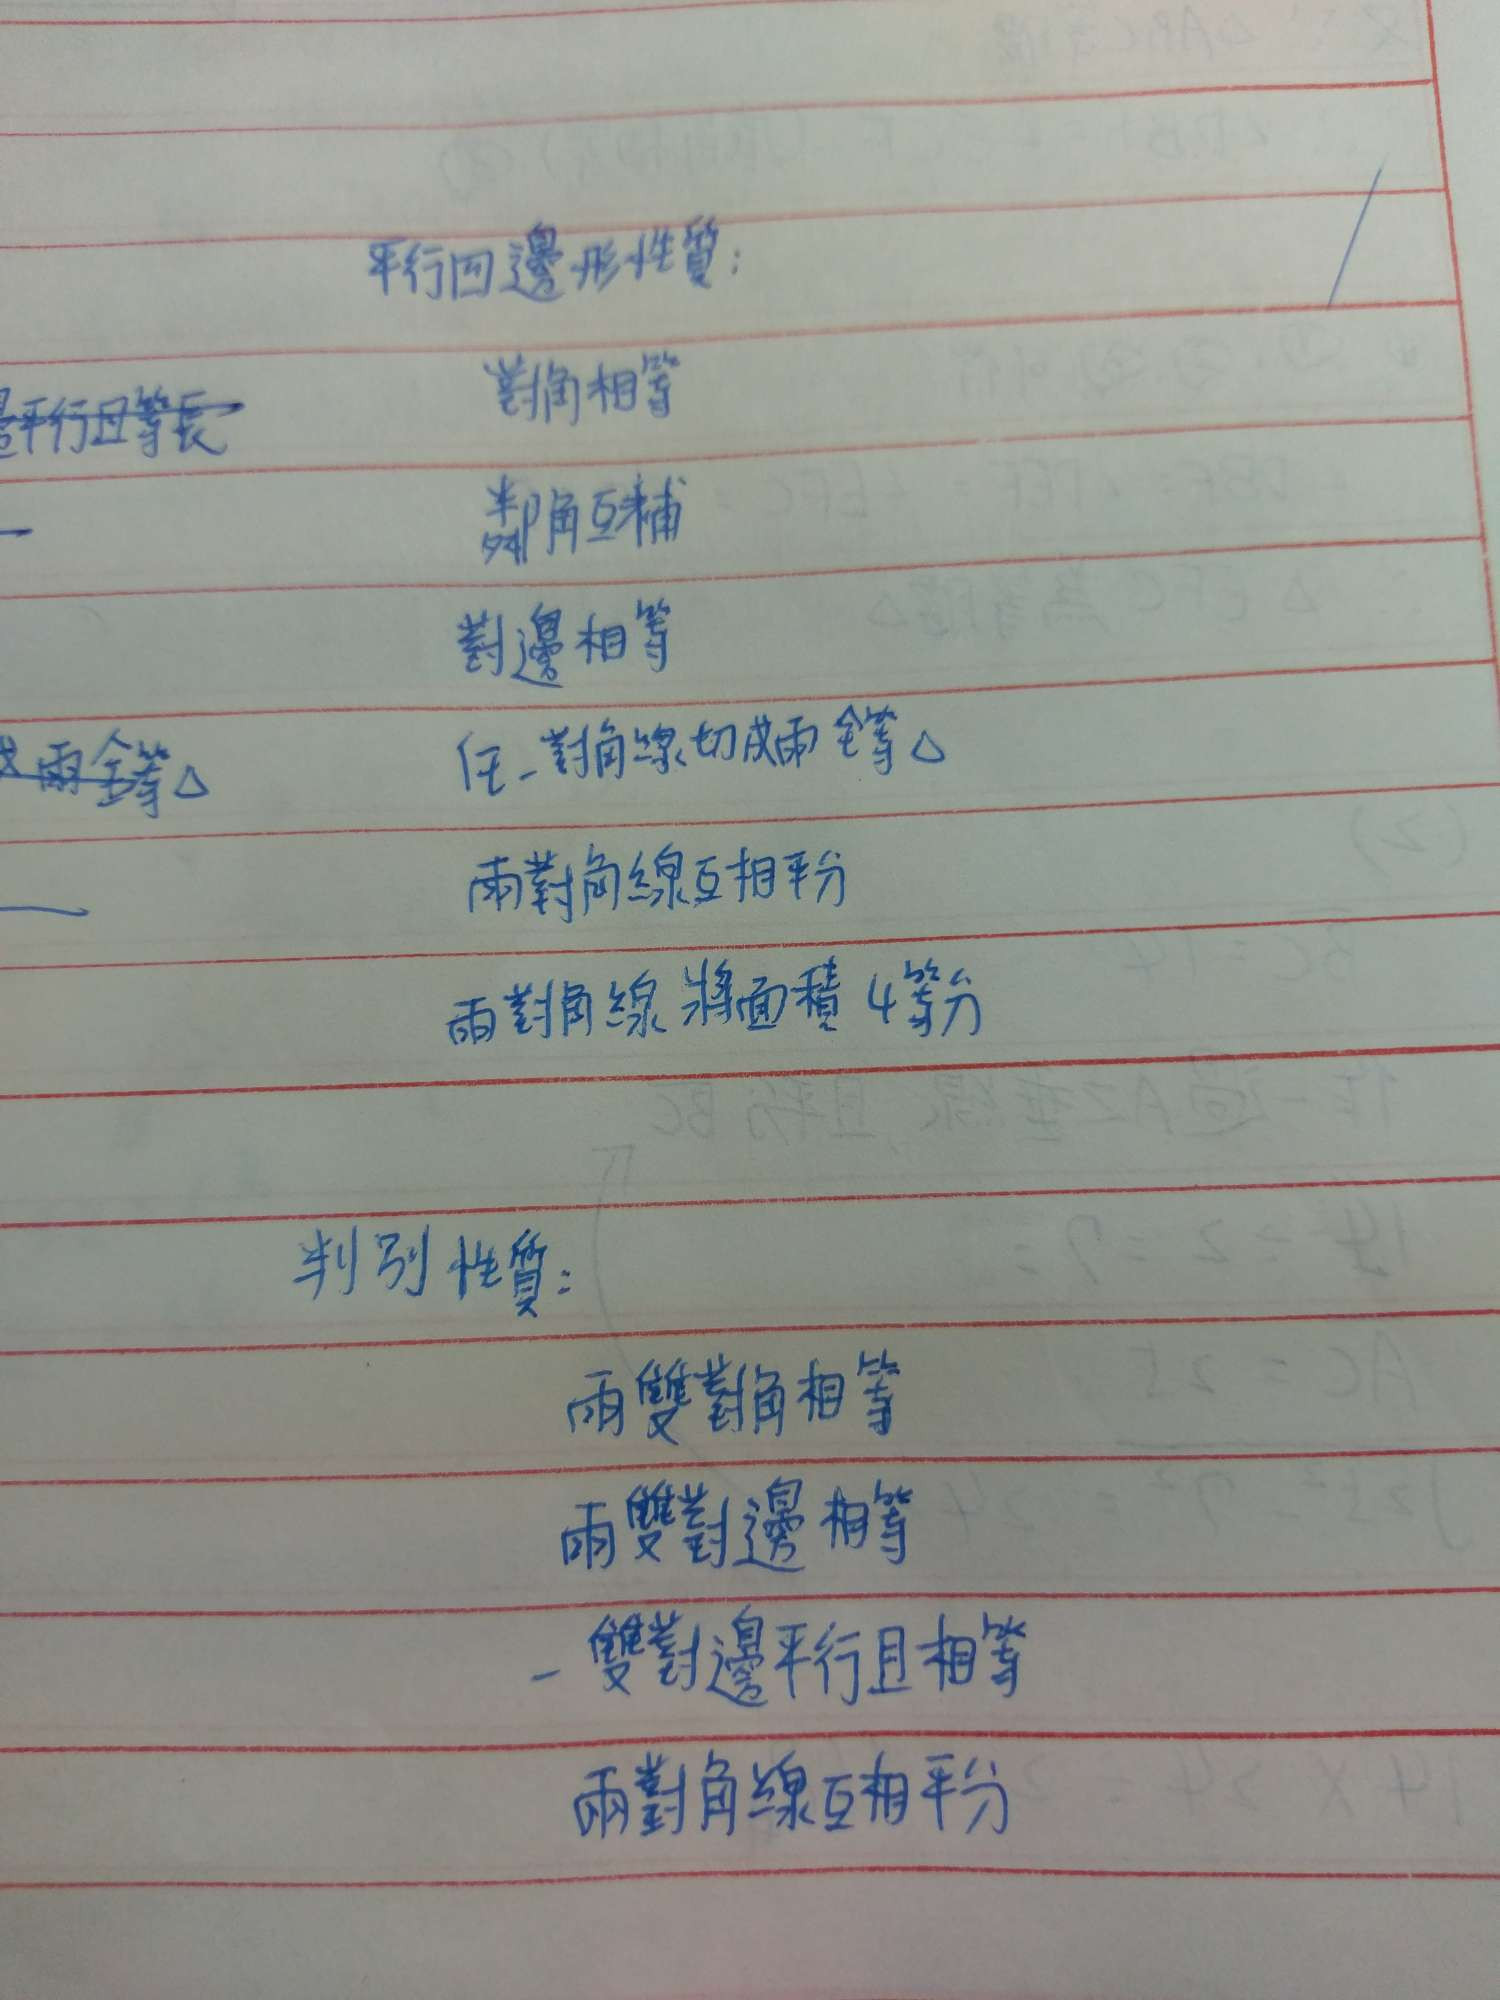 平行四邊形性質:
對角相等
平行且等長
鄰角互補
對邊相等
任一對角線切成兩全等△
兩全等△
兩對角線互相平分
兩對角線將面積4等分
判別性質:
兩雙對角相等
兩雙對邊相等
一雙對邊平行且相等
兩對角線互相平分